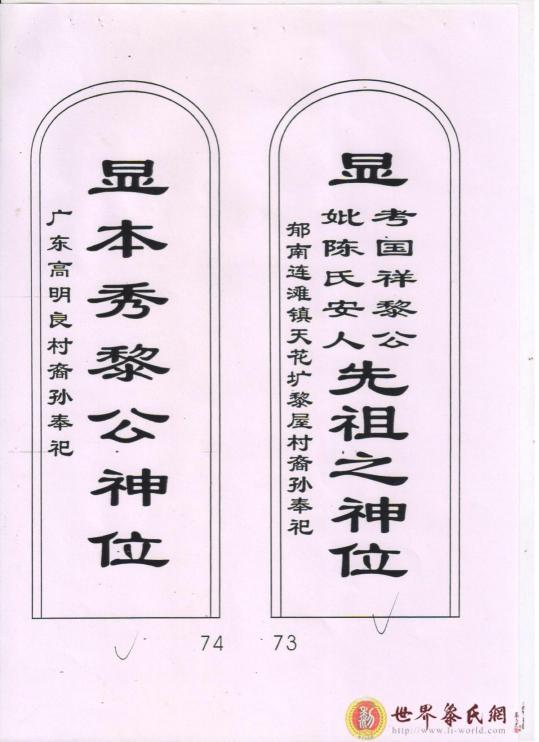 显
考国祥黎公
妣陈氏安人
先祖之神位
郁南连滩镇天花圹黎屋村裔孙奉祀
73
显本秀黎公神位
广东高明良村裔孙奉祀
74
世界黎氏網
http://www.li-world.com